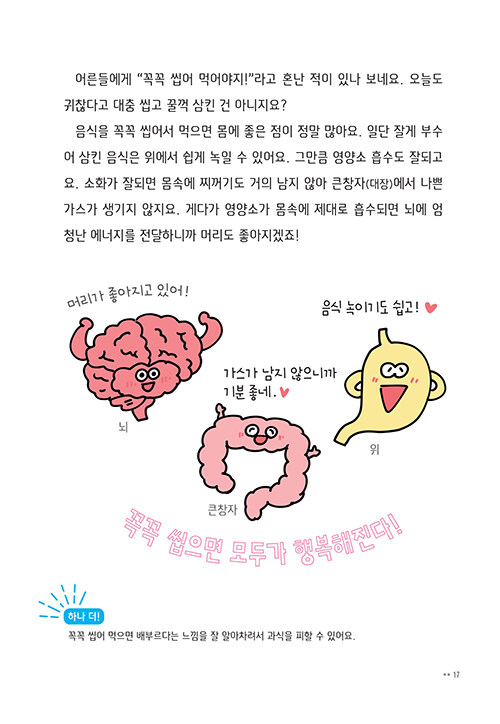 어른들에게 “꼭꼭 씹어 먹어야지!”라고 혼난 적이 있나 보네요. 오늘도
귀찮다고 대충 씹고 꿀꺽 삼킨 건 아니지요?
음식을 꼭꼭 씹어서 먹으면 몸에 좋은 점이 정말 많아요. 일단 잘게 부수
어 삼킨 음식은 위에서 쉽게 녹일 수 있어요. 그만큼 영양소 흡수도 잘되고
요. 소화가 잘되면 몸속에 찌꺼기도 거의 남지 않아 큰창자(대장)에서 나쁜
가스가 생기지 않지요. 게다가 영양소가 몸속에 제대로 흡수되면 뇌에 엄
청난 에너지를 전달하니까 머리도 좋아지겠죠!
머리가 좋아지고 있어!
음식 녹이기도 쉽고!
가스가 남지 않으니까
기분 좋네.
뇌
위
큰창자
꼭꼭 씹으면 모두가 행복해진다!
하나 더!
꼭꼭 씹어 먹으면 배부르다는 느낌을 잘 알아차려서 과식을 피할 수 있어요.
17